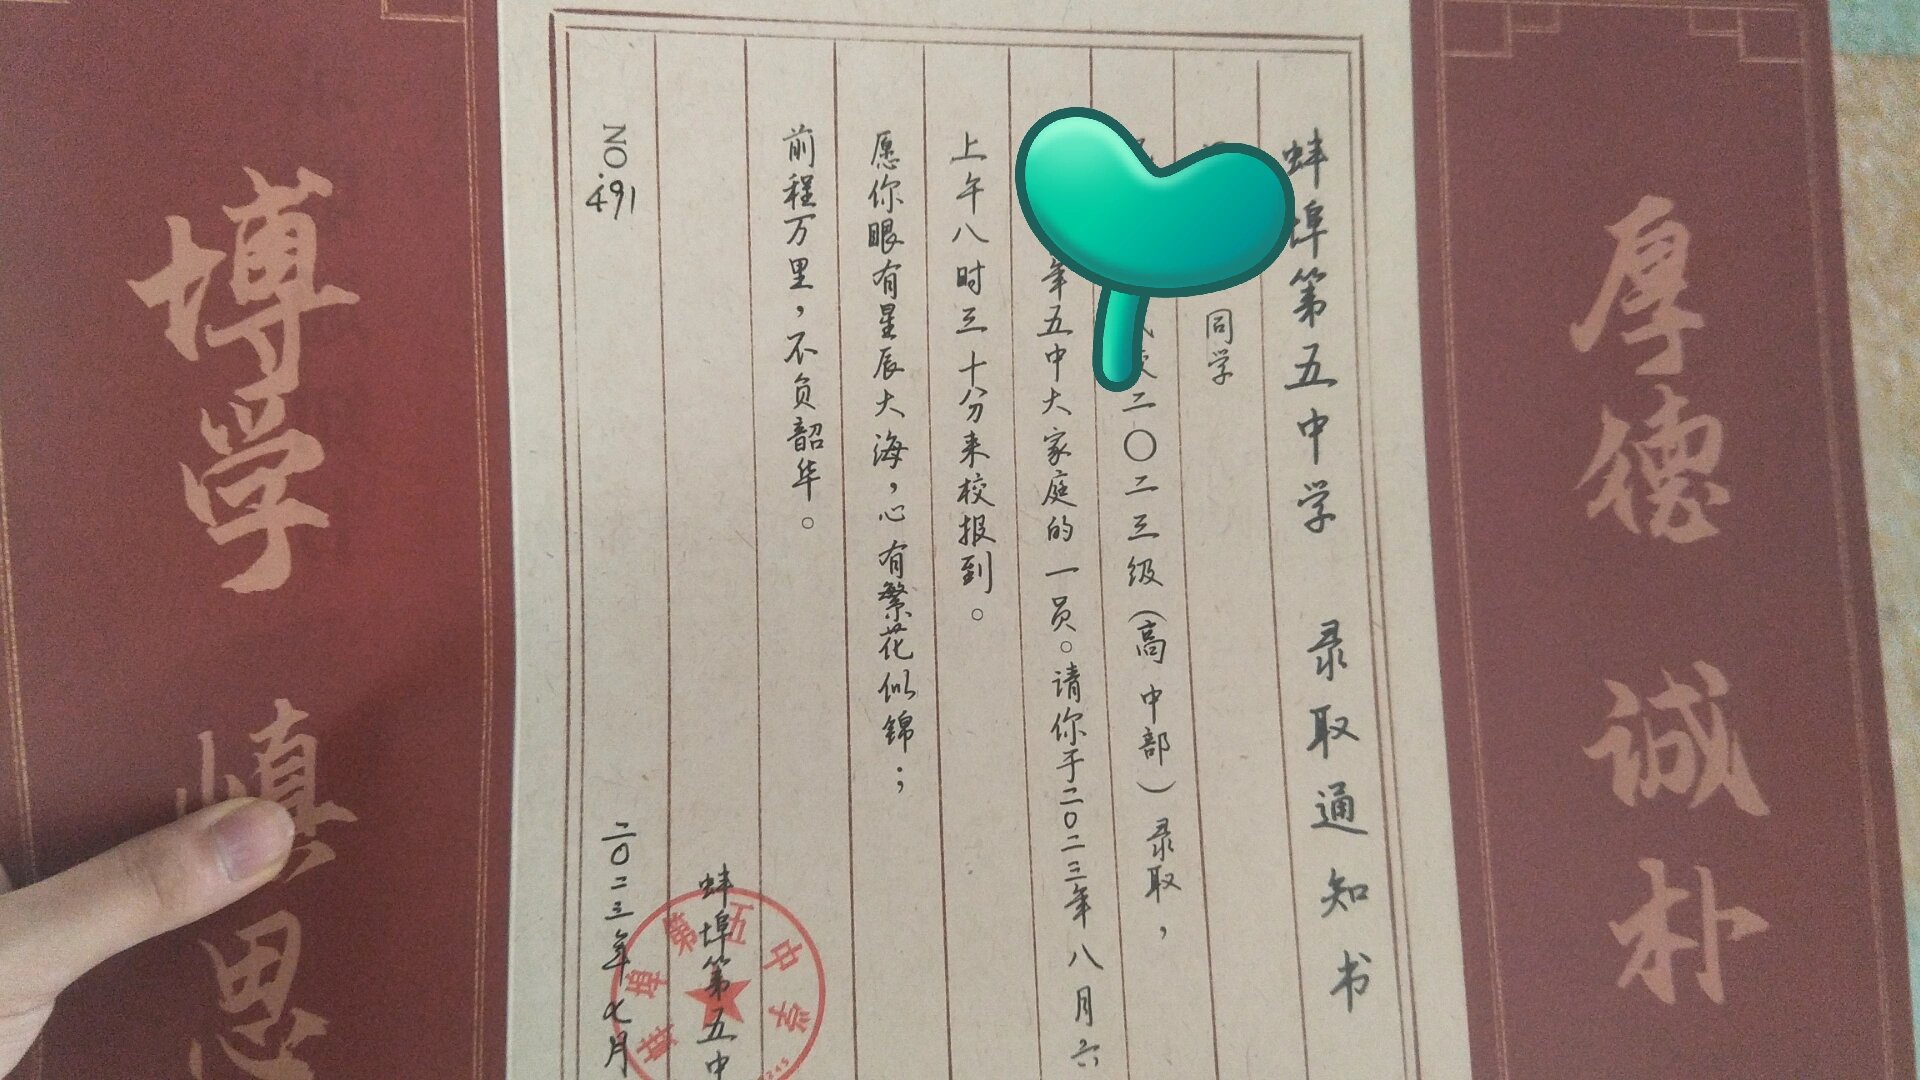 厚德 诚朴
蚌埠第五中学 录取通知书
同学
二〇二三级(高中部)录取，
年五中大家庭的一员。请你于二〇二三年八月六
上午八时三十分来校报到。
愿你眼有星辰大海，心有繁花似锦；
前程万里，不负韶华。
蚌埠第五中
NO.491
二〇二三年七月
蚌埠第五中学
博学 慎思